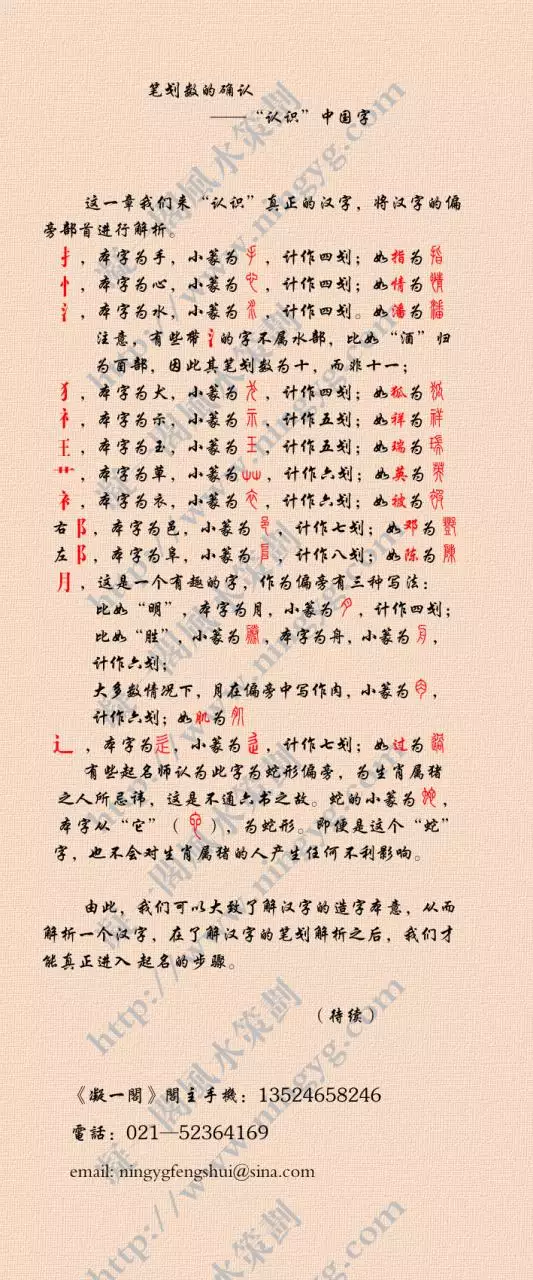 笔划数的确认
——“认识”中国字
这一章我们来“认识”真正的汉字，将汉字的偏
旁部首进行解析。
扌，本字为手，小篆为手，计作四划；如指为指
忄，本字为心，小篆为心，计作四划；如情为情
氵，本字为水，小篆为水，计作四划。如潘为潘
注意，有些带氵的字不属水部，比如“酒”归
为酉部，因此其笔划数为十，而非十一；
犭，本字为犬，小篆为犬，计作四划；如狐为狐
礻，本字为示，小篆为示，计作五划；如祥为祥
王，本字为玉，小篆为王，计作五划；如瑞为瑞
艹，本字为草，小篆为艸，计作六划；如英为英
衤，本字为衣，小篆为衣，计作六划；如被为被
右阝，本字为邑，小篆为邑，计作七划；如邓为鄧
左阝，本字为阜，小篆为阜，计作八划；如陈为陳
月，这是一个有趣的字，作为偏旁有三种写法：
比如“明”，本字为月，小篆为月，计作四划；
比如“胜”，小篆为勝，本字为舟，小篆为舟，
计作六划；
大多数情况下，月在偏旁中写作肉，小篆为肉，
计作六划；如肌为肌
辶，本字为辵，小篆为辵，计作七划；如过为過
有些起名师认为此字为蛇形偏旁，为生肖属猪
之人所忌讳，这是不通六书之故。蛇的小篆为蛇，
本字从“它”（它），为蛇形。即便是这个“蛇”
字，也不会对生肖属猪的人产生任何不利影响。
由此，我们可以大致了解汉字的造字本意，从而
解析一个汉字，在了解汉字的笔划解析之后，我们才
能真正进入 起名的步骤。
（待续）
《凝一閣》閣主手機：13524658246
電話：021—52364169
email: ningygfengshui@sina.com
凝一閣風水策劃
http://www.ningyg.com